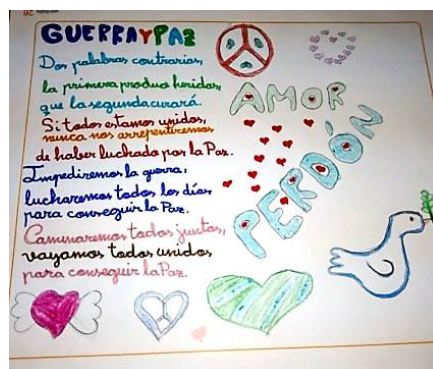 GUERRA Y PAZ
Dos palabras contrarias,
la primera produce heridas,
que la segunda curará.
Si todos estamos unidos,
nunca nos arrepentiremos
de haber luchado por la Paz.
Impediremos la guerra,
lucharemos todos los días
para conseguir la Paz.
Caminaremos todos juntos,
vayamos todos unidos
para conseguir la Paz.
AMOR
PERDÓN